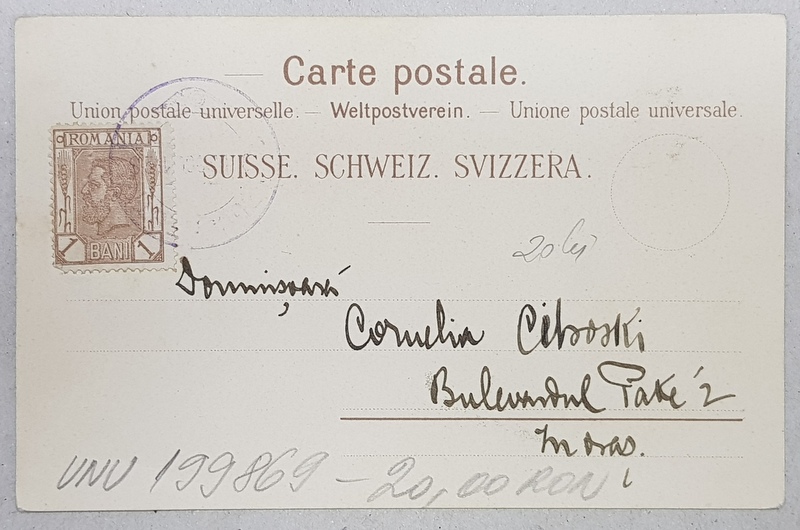 Carte postale.
Union postale universelle. — Weltpostverein. — Unione postale universale.
ROMANIA
SUISSE. SCHWEIZ. SVIZZERA.
1 BANI 1
20 lei
Domnișoarei
Cornelia Ciboski
Bulevardul Take 2
In oraș.
UNU 199869 - 20,00 RON